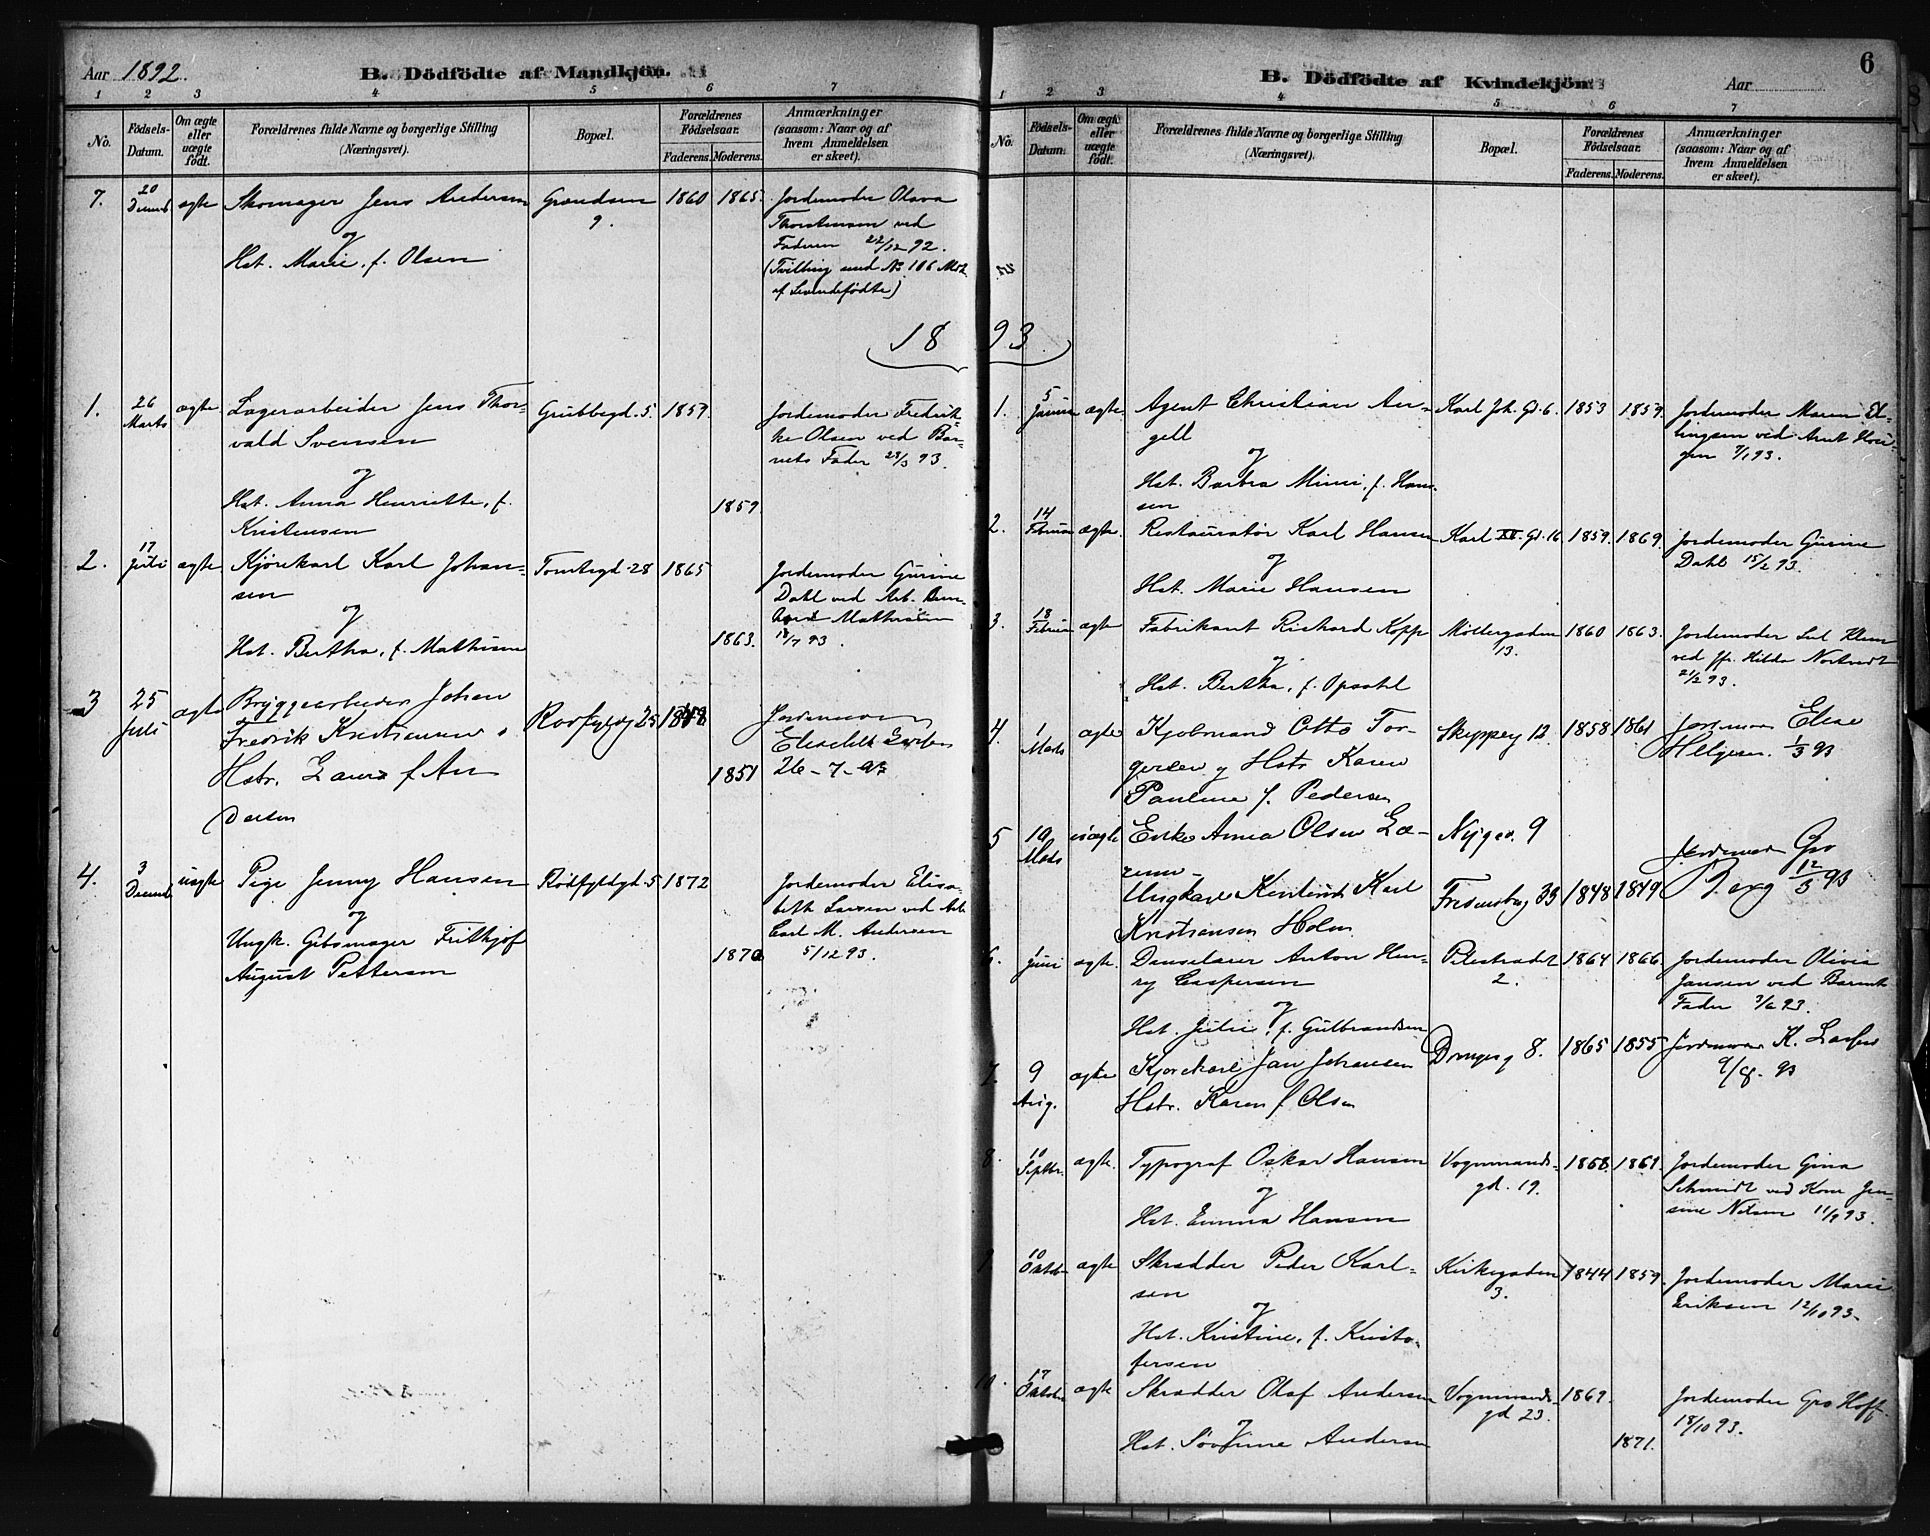 Aar 1892.
B. Dödfödte af Mandkjön.
1 2 3 4 5 6 7
No.
Födsels-
Datum.
Om ægte
eller
uægte
födt.
Forældrenes fulde Navne og borgerlige Stilling
(Næringsvei).
Bopæl.
Forældrenes
Födselsaar.
Faderens. Moderens.
Anmærkninger
(saasom: Naar og af
hvem Anmeldelsen
er skeet).
7. 20 ægte Skomager Jens Andersen Grændsen 9. 1860 1865.
og
Hst. Marie, f. Olsen
Jordemoder Olava
Thorstensen ved
Faderen 22/12 92.
(Tvilling med No 106
af Levendefödte)
1893
1. 26 Marts ægte Lagerarbeider Jens Thor-
vald Svensen
og
Hst. Anna Henriette, f.
Kristensen
Grubbegd. 5. 1857. 1859.
Jordemoder Fredrik-
ke Olsen ved Bar-
nets Fader 28/3 93.
2. 17 Juli ægte Kjörekarl Karl Johan-
sen
og
Hst. Bertha, f. Mathisen
Tomtegd. 28 1865 1863.
Jordemoder Gurine
Dahl ved Arb.
Mathisen
18/7 93.
3 25 Juli ægte Bryggearbeider Johan
Fredrik Kristiansen
Hstr. Laura f An
dersen
25 1851
Elisabeth Larsen
26-7-93
4. 3 uægte Pige Jenny Hansen
og
Ungk. Gibsmager Frithjof
August Pettersen
Rödfyldgd. 5 1872 1870
Jordemoder Elisa-
beth Larsen ved Arb.
Carl M. Andersen
5/12 93.
6
B. Dödfödte af Kvindekjön.
Aar
1 2 3 4 5 6 7
No.
Födsels-
Datum.
Om ægte
eller
uægte
födt.
Forældrenes fulde Navne og borgerlige Stilling
(Næringsvei).
Bopæl.
Forældrenes
Födselsaar.
Faderens. Moderens.
Anmærkninger
(saasom: Naar og af
hvem Anmeldelsen
er skeet).
1. 5 Januar ægte. Agent Christian An-
gell
og
Hst. Barbra Mimi, f. Han-
sen
Karl Joh. Gd. 6. 1853 1859.
Jordemoder Maren El-
lingsen ved Arnt
7/1 93.
2. 14 Februar ægte. Restauratör Karl Hansen
og
Hst. Marie Hansen
Karl XII. Gd. 16 1859. 1869.
Jordemoder Gurine
Dahl 15/2 93.
3. 18 Februar ægte Fabrikant Richard Kopp
og
Hst. Bertha, f. Opsahl
Möllergaden 13. 1860 1863.
Jordemoder
ved Hilda
21/2 93.
4. 1 Marts ægte Kjöbmand Otto Tor-
gersen og Hstr Karen
Pauline f. Pedersen
Skipperg 12. 1858 1861
Elise
Helgesen. 1/3 93
5 10 Marts uægte Enke Anna Olsen
Ungkarl Karl
Kristiansen Holm.
Nygd. 9
Fredensborg 33 1848 1849
Gro
Berg 12/3 93
6. Juni ægte. Danselærer Anton Hen-
ry Caspersen
og
Hst. Julie, f. Gulbrandsen
Pilestrædet 2. 1864 1866
Jordemoder Olivia
Jansen ved Barnets
Fader 3/6 93.
7. 9 Aug. ægte Kjörekarl Jan Johansen
Hstr. Karen f. Olsen
8. 1865 1855
K. Larsen
9/8. 93
8. 10 Septbr. ægte. Typograf Oskar Hansen
og
Hst. Emma Hansen
Vognmands-
gd. 19. 1868. 1861.
Jordemoder Gina
Schmidt ved Kone Jen-
sine Nilsen 11/9 93.
9. 10 Oktober ægte Skrædder Peder Karl-
sen
og
Hst. Kristine, f. Kristo-
fersen
Kirkegaden 3. 1844 1859.
Jordemoder Marie
Eriksen 12/10 93.
10. 17 Oktober ægte Skrædder Olaf Andersen
og
Hst. Andersen
Vognmands-
gd 23. 1869. 1871.
Jordemoder Gro Hoff
18/10 93.